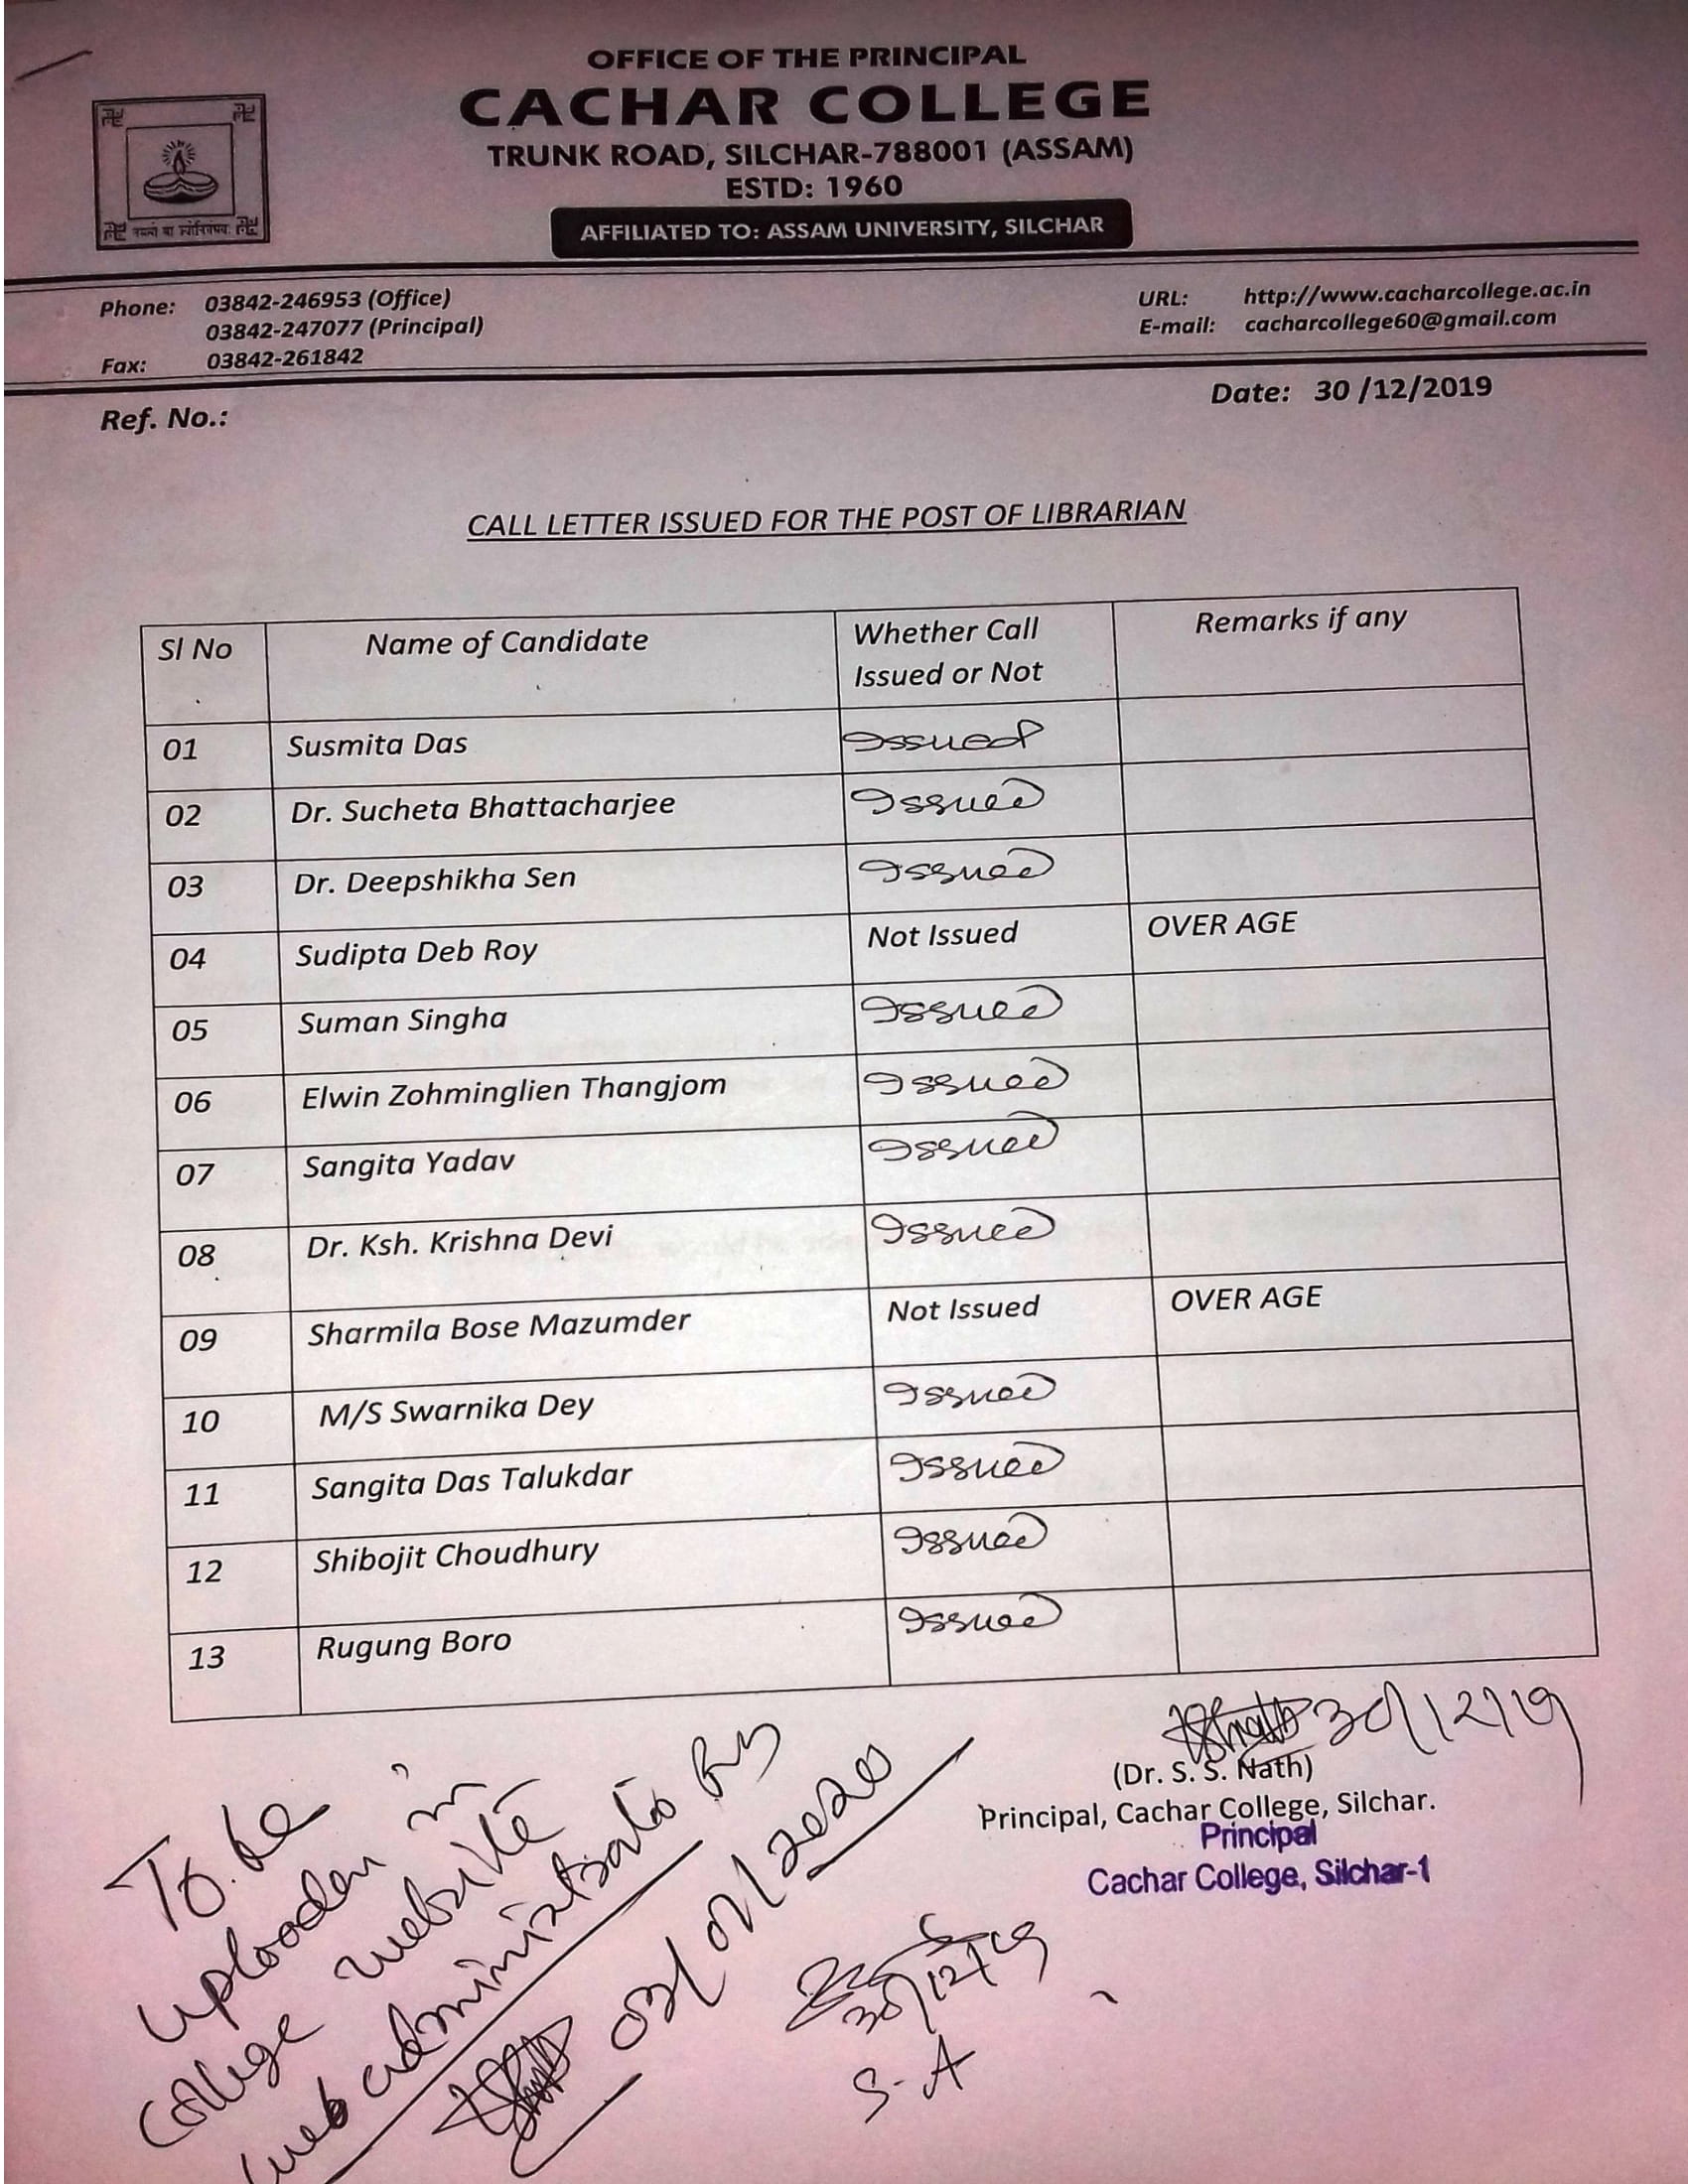 OFFICE OF THE PRINCIPAL
CACHAR COLLEGE
TRUNK ROAD, SILCHAR-788001 (ASSAM)
ESTD: 1960
AFFILIATED TO: ASSAM UNIVERSITY, SILCHAR
Phone: 03842-246953 (Office)
03842-247077 (Principal)
Fax: 03842-261842
URL: http://www.cacharcollege.ac.in
E-mail: cacharcollege60@gmail.com
Ref. No.:
Date: 30 /12/2019
CALL LETTER ISSUED FOR THE POST OF LIBRARIAN
Sl No Name of Candidate Whether Call Remarks if any
Issued or Not
01 Susmita Das Issued
02 Dr. Sucheta Bhattacharjee Issued
03 Dr. Deepshikha Sen Issued
04 Sudipta Deb Roy Not Issued OVER AGE
05 Suman Singha Issued
06 Elwin Zohminglien Thangjom Issued
07 Sangita Yadav Issued
08 Dr. Ksh. Krishna Devi Issued
09 Sharmila Bose Mazumder Not Issued OVER AGE
10 M/S Swarnika Dey Issued
11 Sangita Das Talukdar Issued
12 Shibojit Choudhury Issued
13 Rugung Boro Issued
30/12/19
(Dr. S. S. Nath)
Principal, Cachar College, Silchar.
Principal
Cachar College, Silchar-1
To be
in
college website
web
03/01/2020
30/12/19
S-A